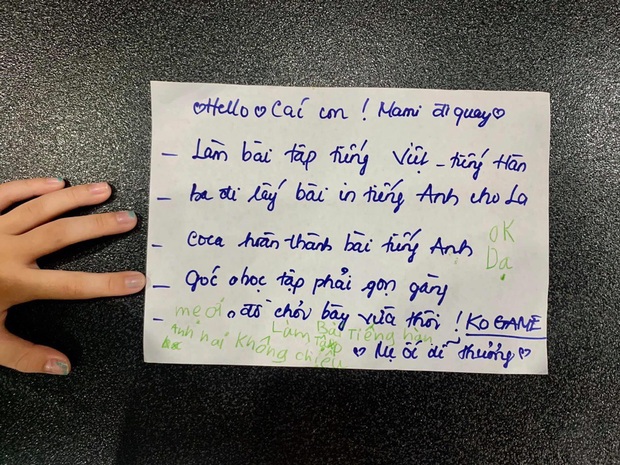 ♡Hello♡ Cái con ! Mami đi quay♡
- Làm bài tập tiếng Việt - tiếng Hàn
- Ba đi lấy bài in tiếng Anh cho La
- Coca hoàn thành bài tiếng Anh
OK
Dạ
- Góc học tập phải gọn gàng
- đồ chơi bày vừa thôi ! KO GAME
mẹ ơi
Anh hai không chiệu Làm Bài Tập Tiếng hàn
♡ Mẹ ối dễ thương ♡